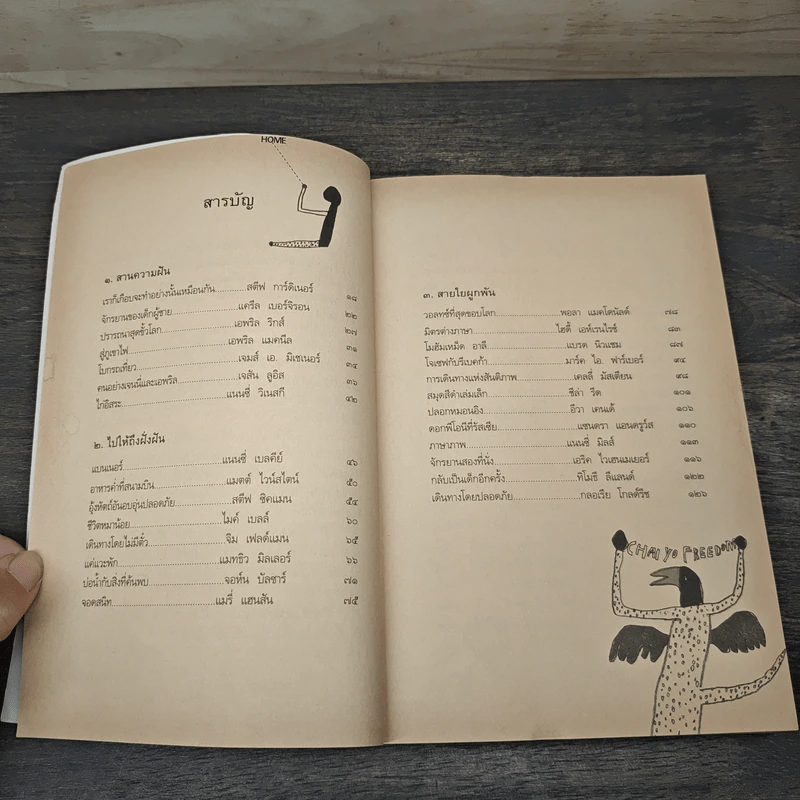 HOME
สารบัญ
๑. สานความฝัน
เราก็เกือบจะทำอย่างนั้นเหมือนกัน..........สตีฟ การ์ดิเนอร์ ๑๘
จักรยานของเด็กผู้ชาย..........แคริล เบอร์จิรอน ๒๒
ปรารถนาสุดขั้วโลก..........เอพริล ริกส์ ๒๗
สู่ภูเขาไฟ..........เอพริล แมคนีล ๓๑
โบกรถเที่ยว..........เจมส์ เอ. มิเชเนอร์ ๓๔
คนอย่างเจนนี่และเอพริล..........เจสัน ลูอิส ๓๖
ไก่อิสระ..........แนนซี่ วิเนสกี ๔๒
๒. ไปให้ถึงฝั่งฝัน
แบนเนอร์..........แนนซี่ เบลคีย์ ๔๖
อาหารค่ำที่สนามบิน..........แมตต์ ไวน์สไตน์ ๕๐
อุ้งหัตถ์อันอบอุ่นปลอดภัย..........สตีฟ ซิคแมน ๕๔
ชีวิตหมาน้อย..........ไมค์ เบลล์ ๖๐
เดินทางโดยไม่มีตั๋ว..........จิม เฟลด์แมน ๖๕
แค่แวะพัก..........แมทธิว มิลเลอร์ ๖๖
บ่อน้ำกับสิ่งที่ค้นพบ..........จอห์น บัลซาร์ ๗๑
จอดสนิท..........แมรี่ แฮนสัน ๗๕
๓. สายใยผูกพัน
วอลทซ์ที่สุดขอบโลก..........พอลา แมคโดนัลด์ ๗๘
มิตรต่างภาษา..........ไฮดี้ เอห์เรนไรซ์ ๘๓
โมฮัมเหม็ด อาลี..........แบรด นิวแซม ๘๗
โจเซฟกับรีเบคก้า..........มาร์ค ไอ. ฟาร์เบอร์ ๙๔
การเดินทางแห่งสันติภาพ..........เคลลี่ มัสเตียน ๙๘
สมุดสีดำเล่มเล็ก..........ชีล่า รีด ๑๐๑
ปลอกหมอนอิง..........อีวา เคนเด้ ๑๐๖
ดอกพีโอนีที่รัสเซีย..........แซนดรา แอนดรูว์ส ๑๑๐
ภาษาภาพ..........แนนซี่ มิลส์ ๑๑๓
จักรยานสองที่นั่ง..........เอริค ไวเฮนเมเยอร์ ๑๑๖
กลับเป็นเด็กอีกครั้ง..........ทิโมธี ลีแลนด์ ๑๒๒
เดินทางโดยปลอดภัย..........กลอเรีย โกลด์ริช ๑๒๖
CHAI YO FREEDOM